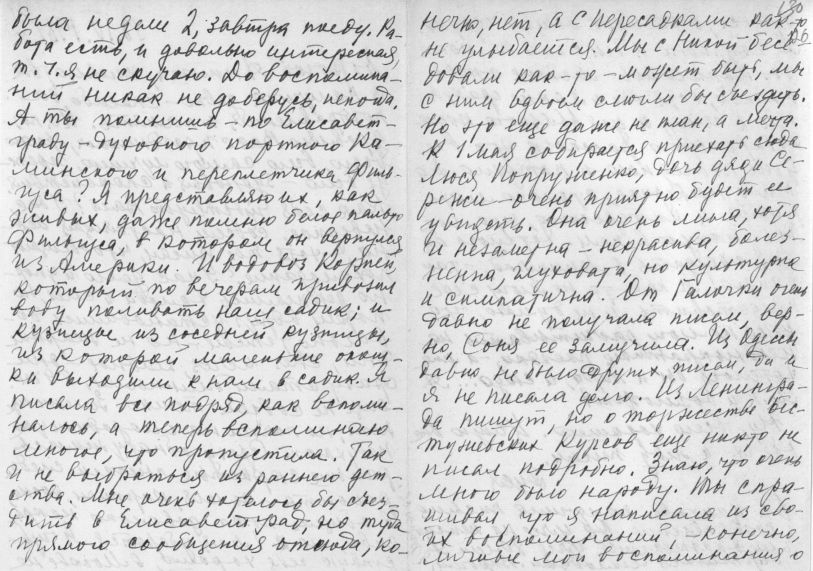 была недели 2, завтра поеду. Ра-
бота есть, и довольно интересная,
т. ч. я не скучаю. До воспомина-
ний никак не доберусь, некогда.
А ты помнишь - по Елисавет-
граду - духовного портного Ка-
минского и переплетчика Филь-
гуса? Я представляю их, как
живых, даже помню белое пальто
Фильгуса, в котором он вернулся
из Америки. И водовоз Корней,
который по вечерам привозил
воду поливать наш садик; и
кузнецы из соседней кузницы,
из которой маленькие окош-
ки выходили к нам в садик. Я
писала все подряд, как вспоми-
налось, а теперь вспоминаю
многое, что пропустила. Так
и не выбраться из раннего дет-
ства. Мне очень хотелось бы съез-
дить в Елисаветград, но туда
прямого сообщения отсюда, ко-
130
нечно, нет, а с пересадками как-то
не улыбается. Мы с Никой бесе-
довали как-то - может быть, мы
с ним вдвоем смогли бы съездить.
Но это еще даже не план, а мечта.
К 1 мая собирается приехать сюда
Люся Попруженко, дочь дяди Се-
режи - очень приятно будет ее
увидеть. Она очень мила, хотя
и незаметна - некрасива, болез-
ненна, глуховата, но культурна
и симпатична. От Галочки очень
давно не получала писем, вер-
но, Соня ее замучила. Из Одессы
давно не было других писем, да и
я не писала долго. Из Ленингра-
да пишут, но о торжестве Бес-
тужевских курсов еще никто не
писал подробно. Знаю, что очень
много было народу. Ты спра-
шивал что я написала из сво-
их воспоминаний, - конечно,
личные мои воспоминания о